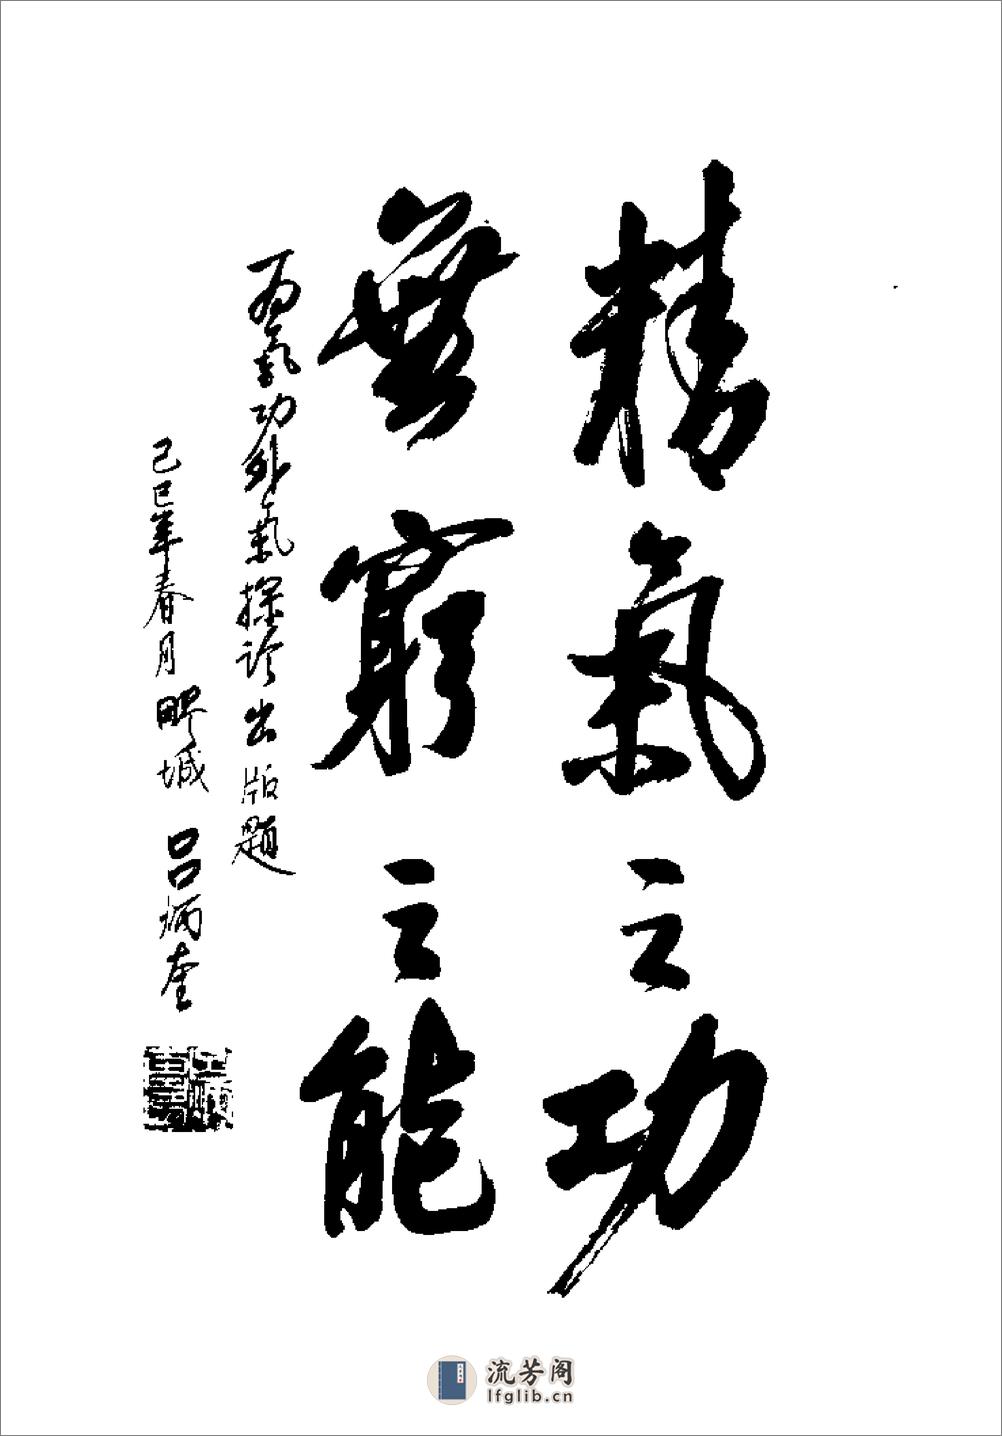 精氣之功
無窮之能
為氣功外氣探診出版題
己巳年春月 城 呂炳奎
流芳阁
lfglib.cn